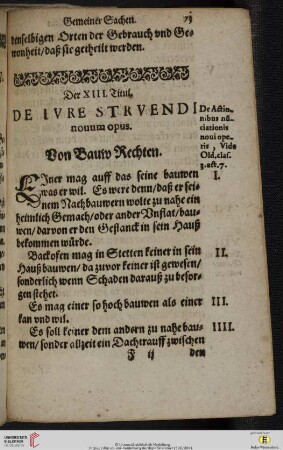 Gemeiner Sachen. 79
tenselbigen Orten der Gebrauch vnd Ge-
wonheit/daß sie getheilt werden.
Der XIII. Titul.
DE IVRE STRVENDI
nouum opus.
Von Bauw Rechten.
De Actin.
nibus nũ-
ciationis
noui ope-
ris, Vide
Old. claſ.
3. act. 7.
EIner mag auff das seine bauwen I.
was er wil. Es were denn/daß er sei-
nem Nachbauwern wolte zu nahe ein
heimlich Gemach/oder ander Vnflat/bau-
wen/darvon er den Gestanck in sein Hauß
bekommen würde.
Backofen mag in Stetten keiner in sein II.
Hauß bauwen/da zuvor keiner ist gewesen/
sonderlich wenn Schaden darauß zu besor-
gen stehet.
Es mag einer so hoch bauwen als einer III.
kan vnd wil.
Es soll keiner dem andern zu nahe bau- IIII.
wen/sonder allzeit ein Dachtrauff zwischen
F ij den
UNIVERSITÄTS-
BIBLIOTHEK
HEIDELBERG